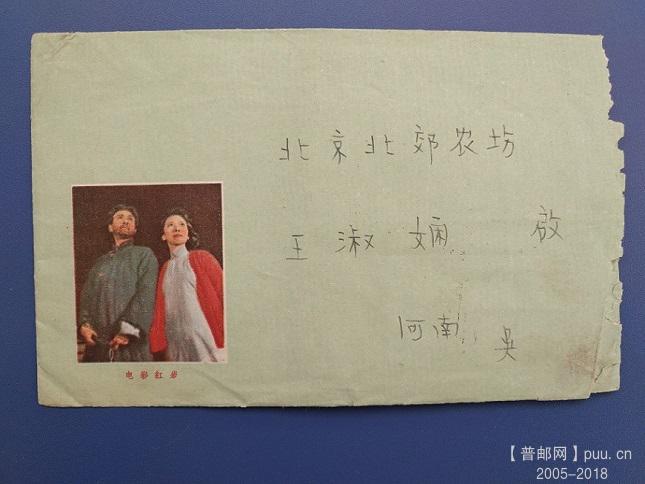 北京北郊农场
王淑娴 啟
河南 吴
电影红岩
【普邮网】puu.cn
2005-2018